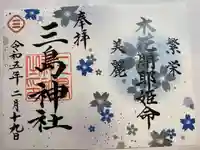 繁栄
木花開耶姫命
美麗
奉拝
三島神社
令和五年二月十九日